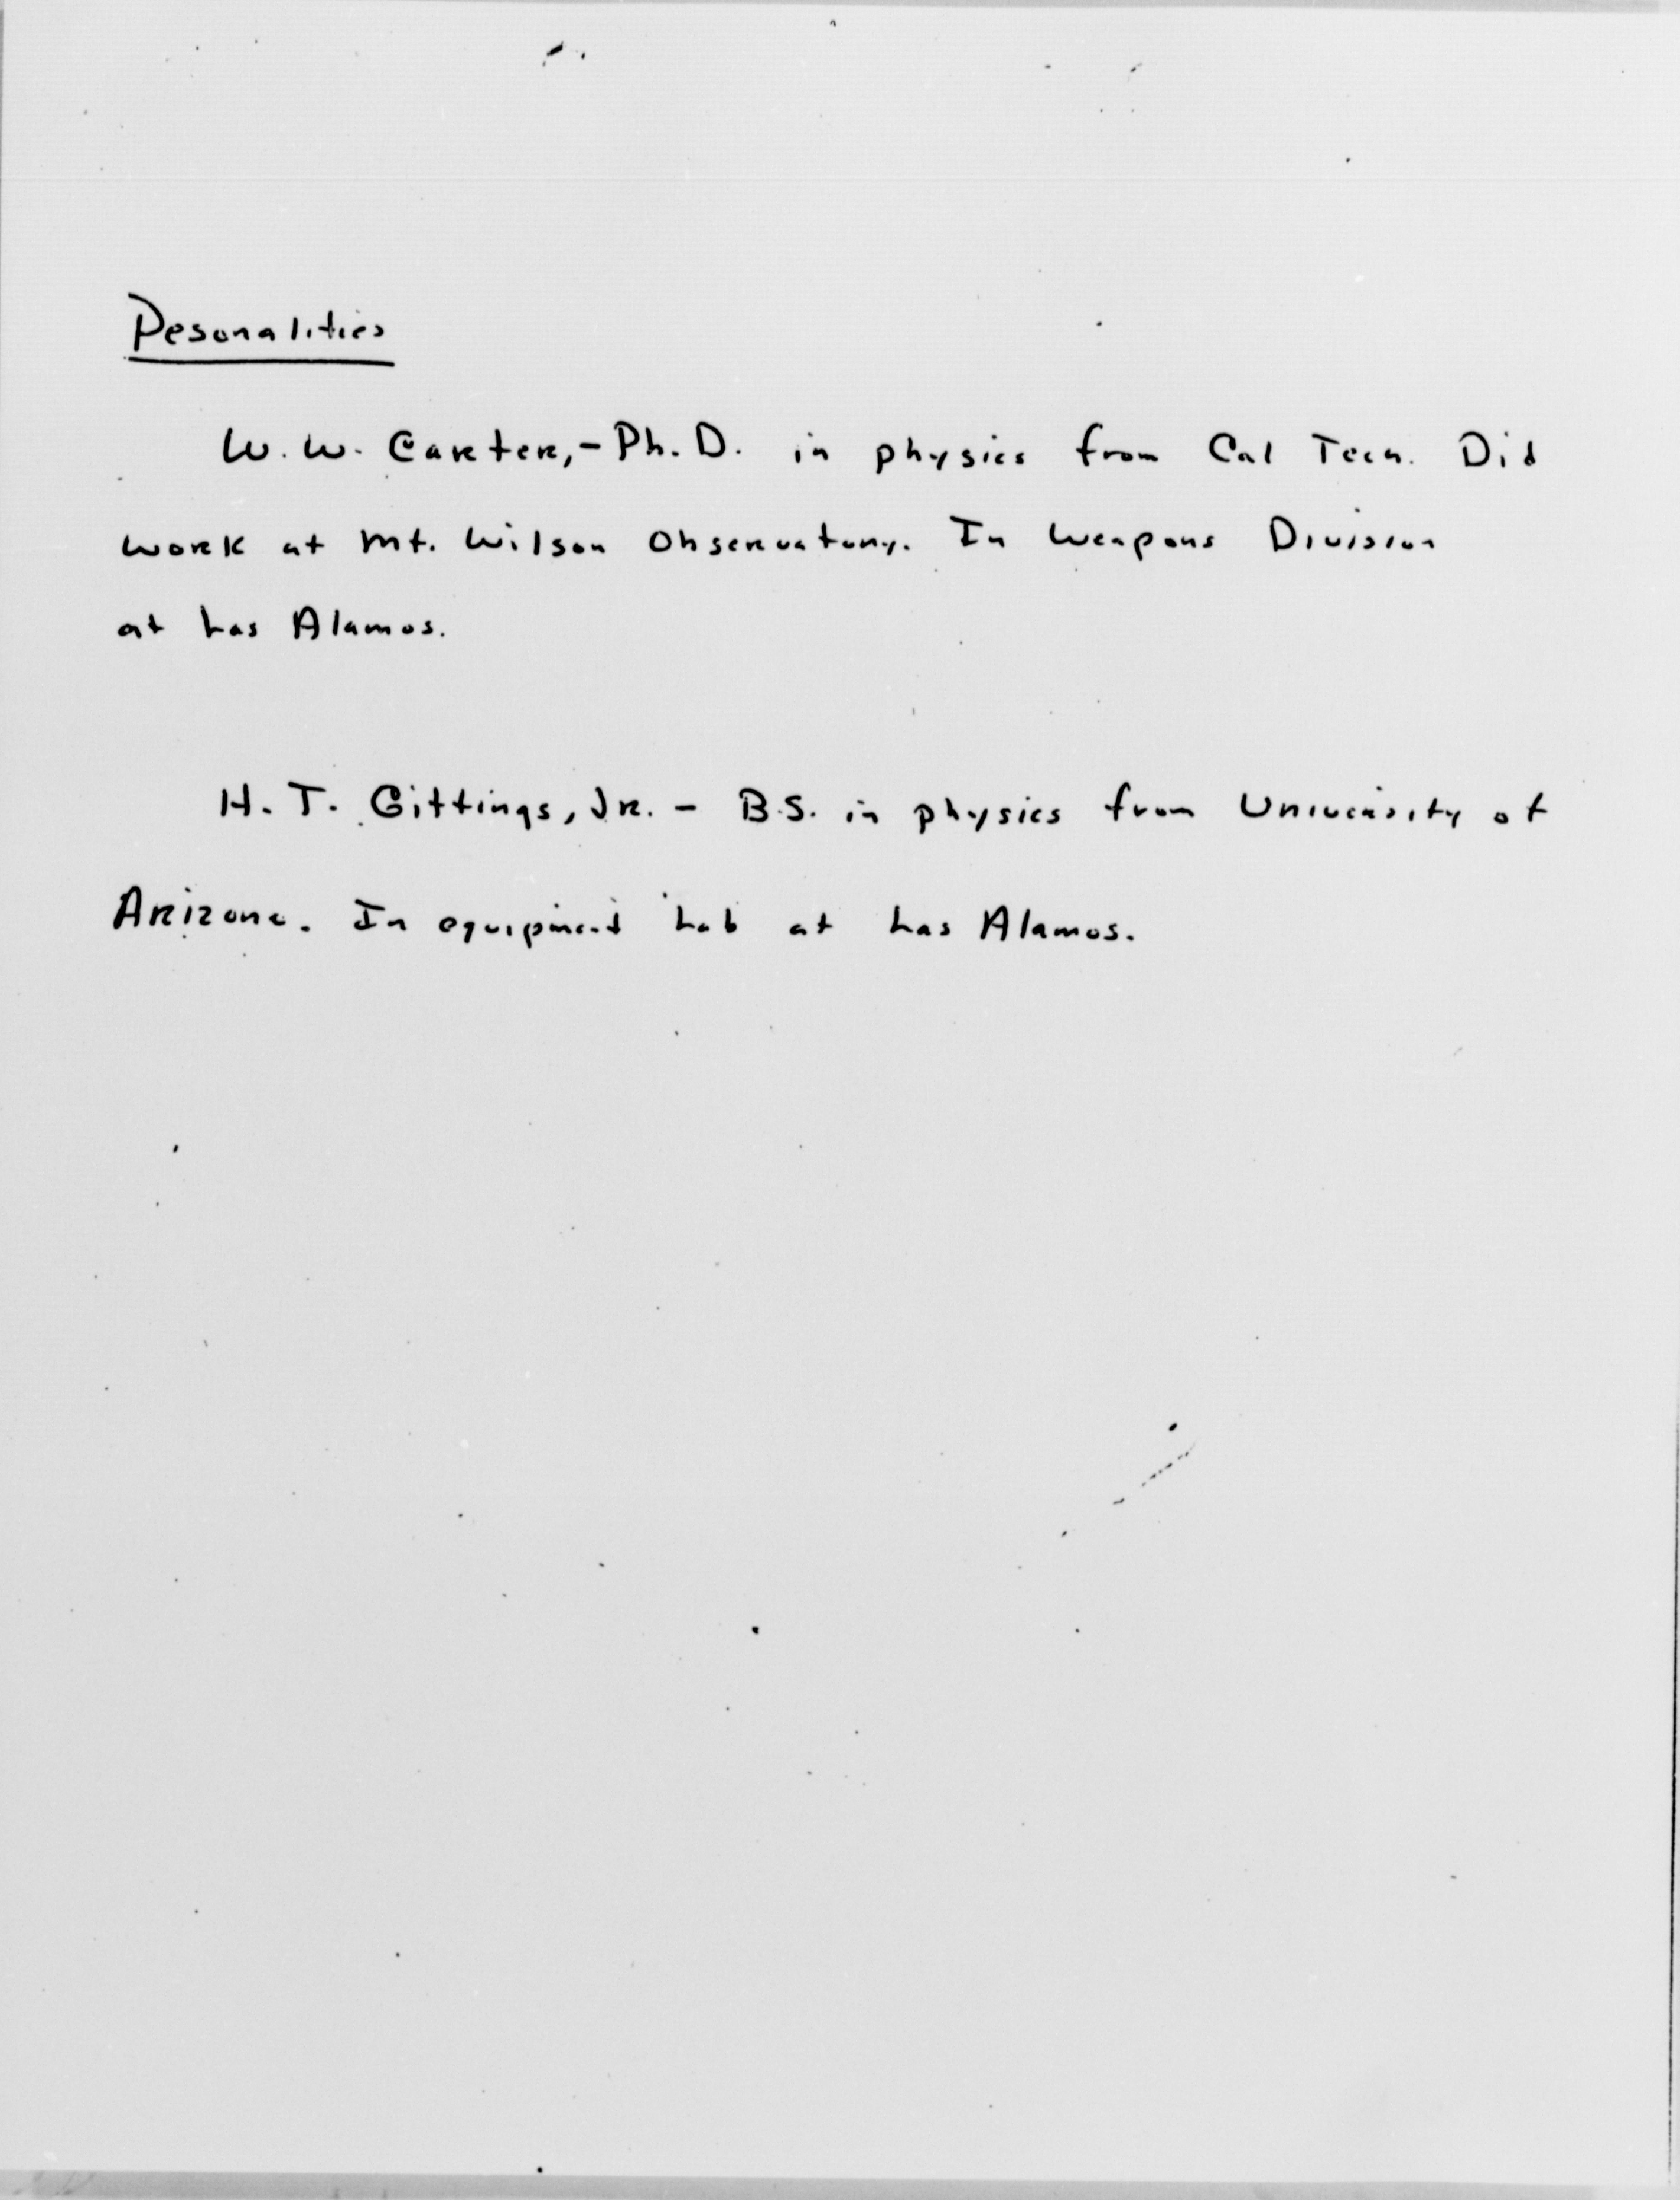 Pesonalities
W. W. Carter, - Ph. D. in physics from Cal Tech. Did
work at Mt. Wilson Observatory. In Weapons Division
at Las Alamos.
H. T. Gittings, Jr. - B.S. in physics from University of
Arizona. In equipment Lab at Las Alamos.